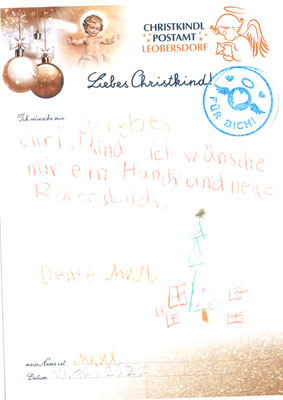 CHRISTKINDL
POSTAMT
LEOBERSDORF
Liebes Christkind!
FÜR DICH!
Ich wünsche mir
Liebes
christkind ich wünsche
mir ein Handy und neue
Deine
mein Name ist
Datum